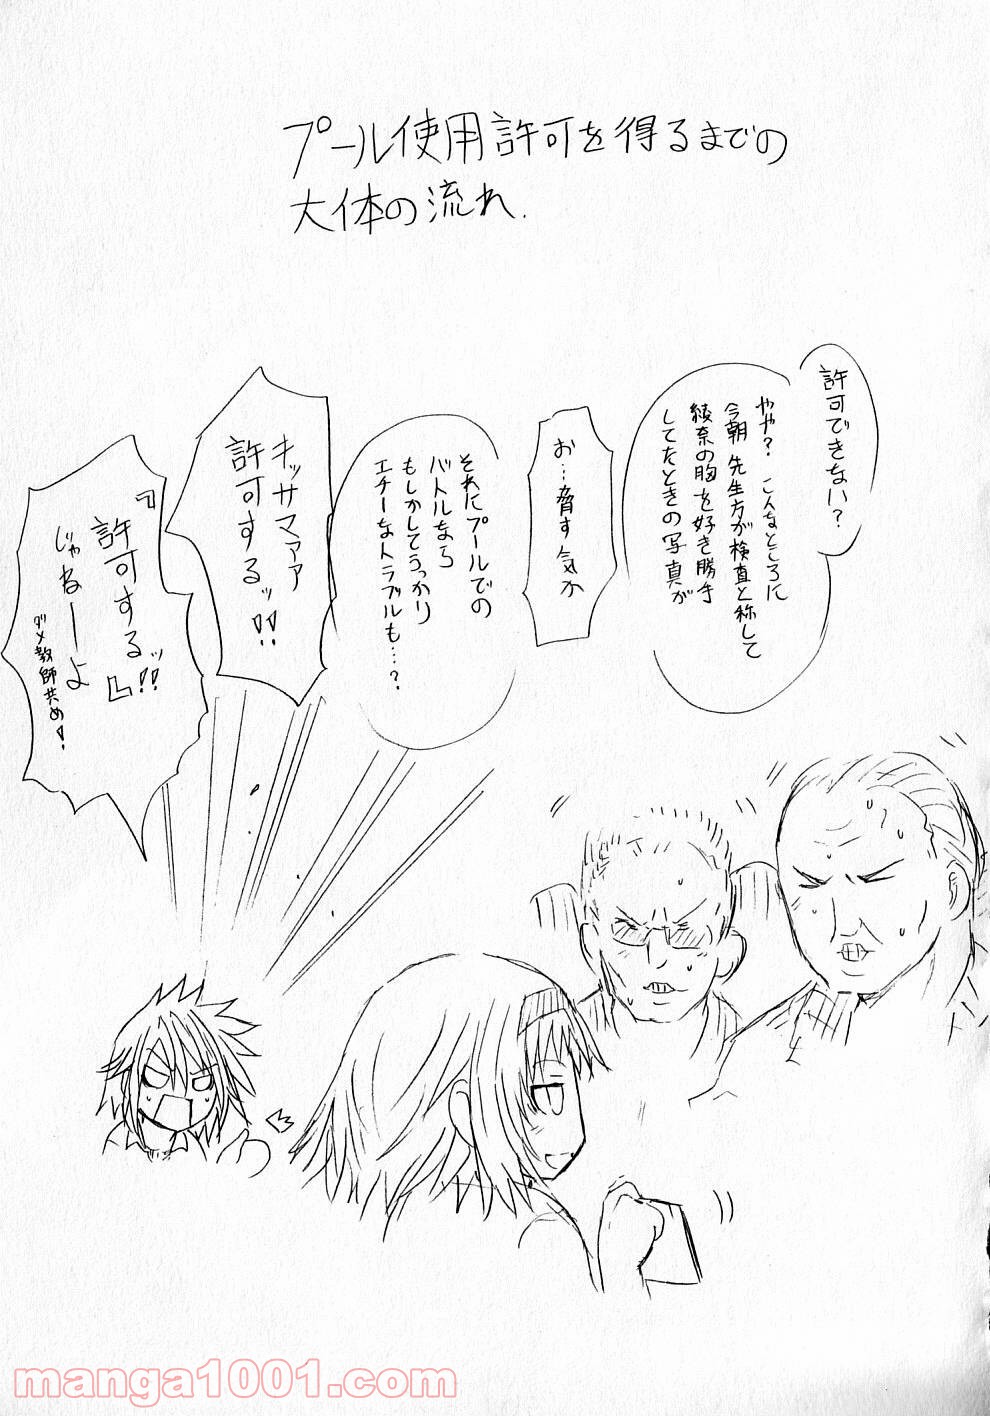 プール使用許可を得るまでの
大体の流れ.
許可できない?
やや? こんなところに
今朝 先生方が検査と称して
綾奈の胸を好き勝手
してたときの写真が
お…脅す気か
それにプールでの
バトルなら
もしかしてうっかり
エチーなトラブルも…?
キッサマァァ
許可するッ!!
『許可するッ!!』
じゃねーよ
ダメ教師共め!
manga1001.com